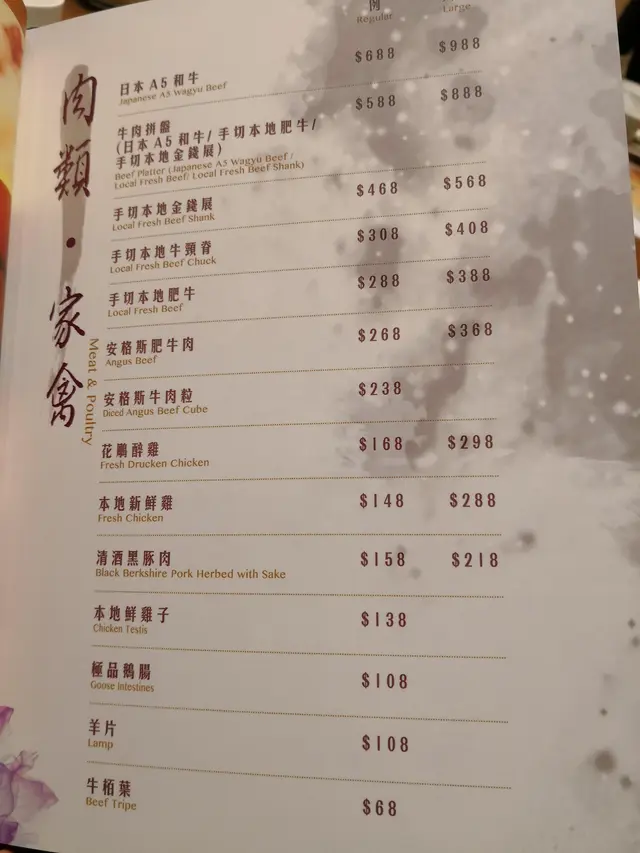 肉類・家禽
Meat & Poultry
例
Regular
Large
日本A5和牛 $688 $988
Japanese A5 Wagyu Beef
牛肉拼盤 $588 $888
(日本A5和牛/手切本地肥牛/
手切本地金錢展)
Beef Platter (Japanese A5 Wagyu Beef /
Local Fresh Beef/ Local Fresh Beef Shank)
手切本地金錢展 $468 $568
Local Fresh Beef Shank
手切本地牛頸脊 $308 $408
Local Fresh Beef Chuck
手切本地肥牛 $288 $388
Local Fresh Beef
安格斯肥牛肉 $268 $368
Angus Beef
安格斯牛肉粒 $238
Diced Angus Beef Cube
花鵰醉雞 $168 $298
Fresh Drucken Chicken
本地新鮮雞 $148 $288
Fresh Chicken
清酒黑豚肉 $158 $218
Black Berkshire Pork Herbed with Sake
本地鮮雞子 $138
Chicken Testis
極品鵝腸 $108
Goose Intestines
羊片 $108
Lamp
牛栢葉 $68
Beef Tripe